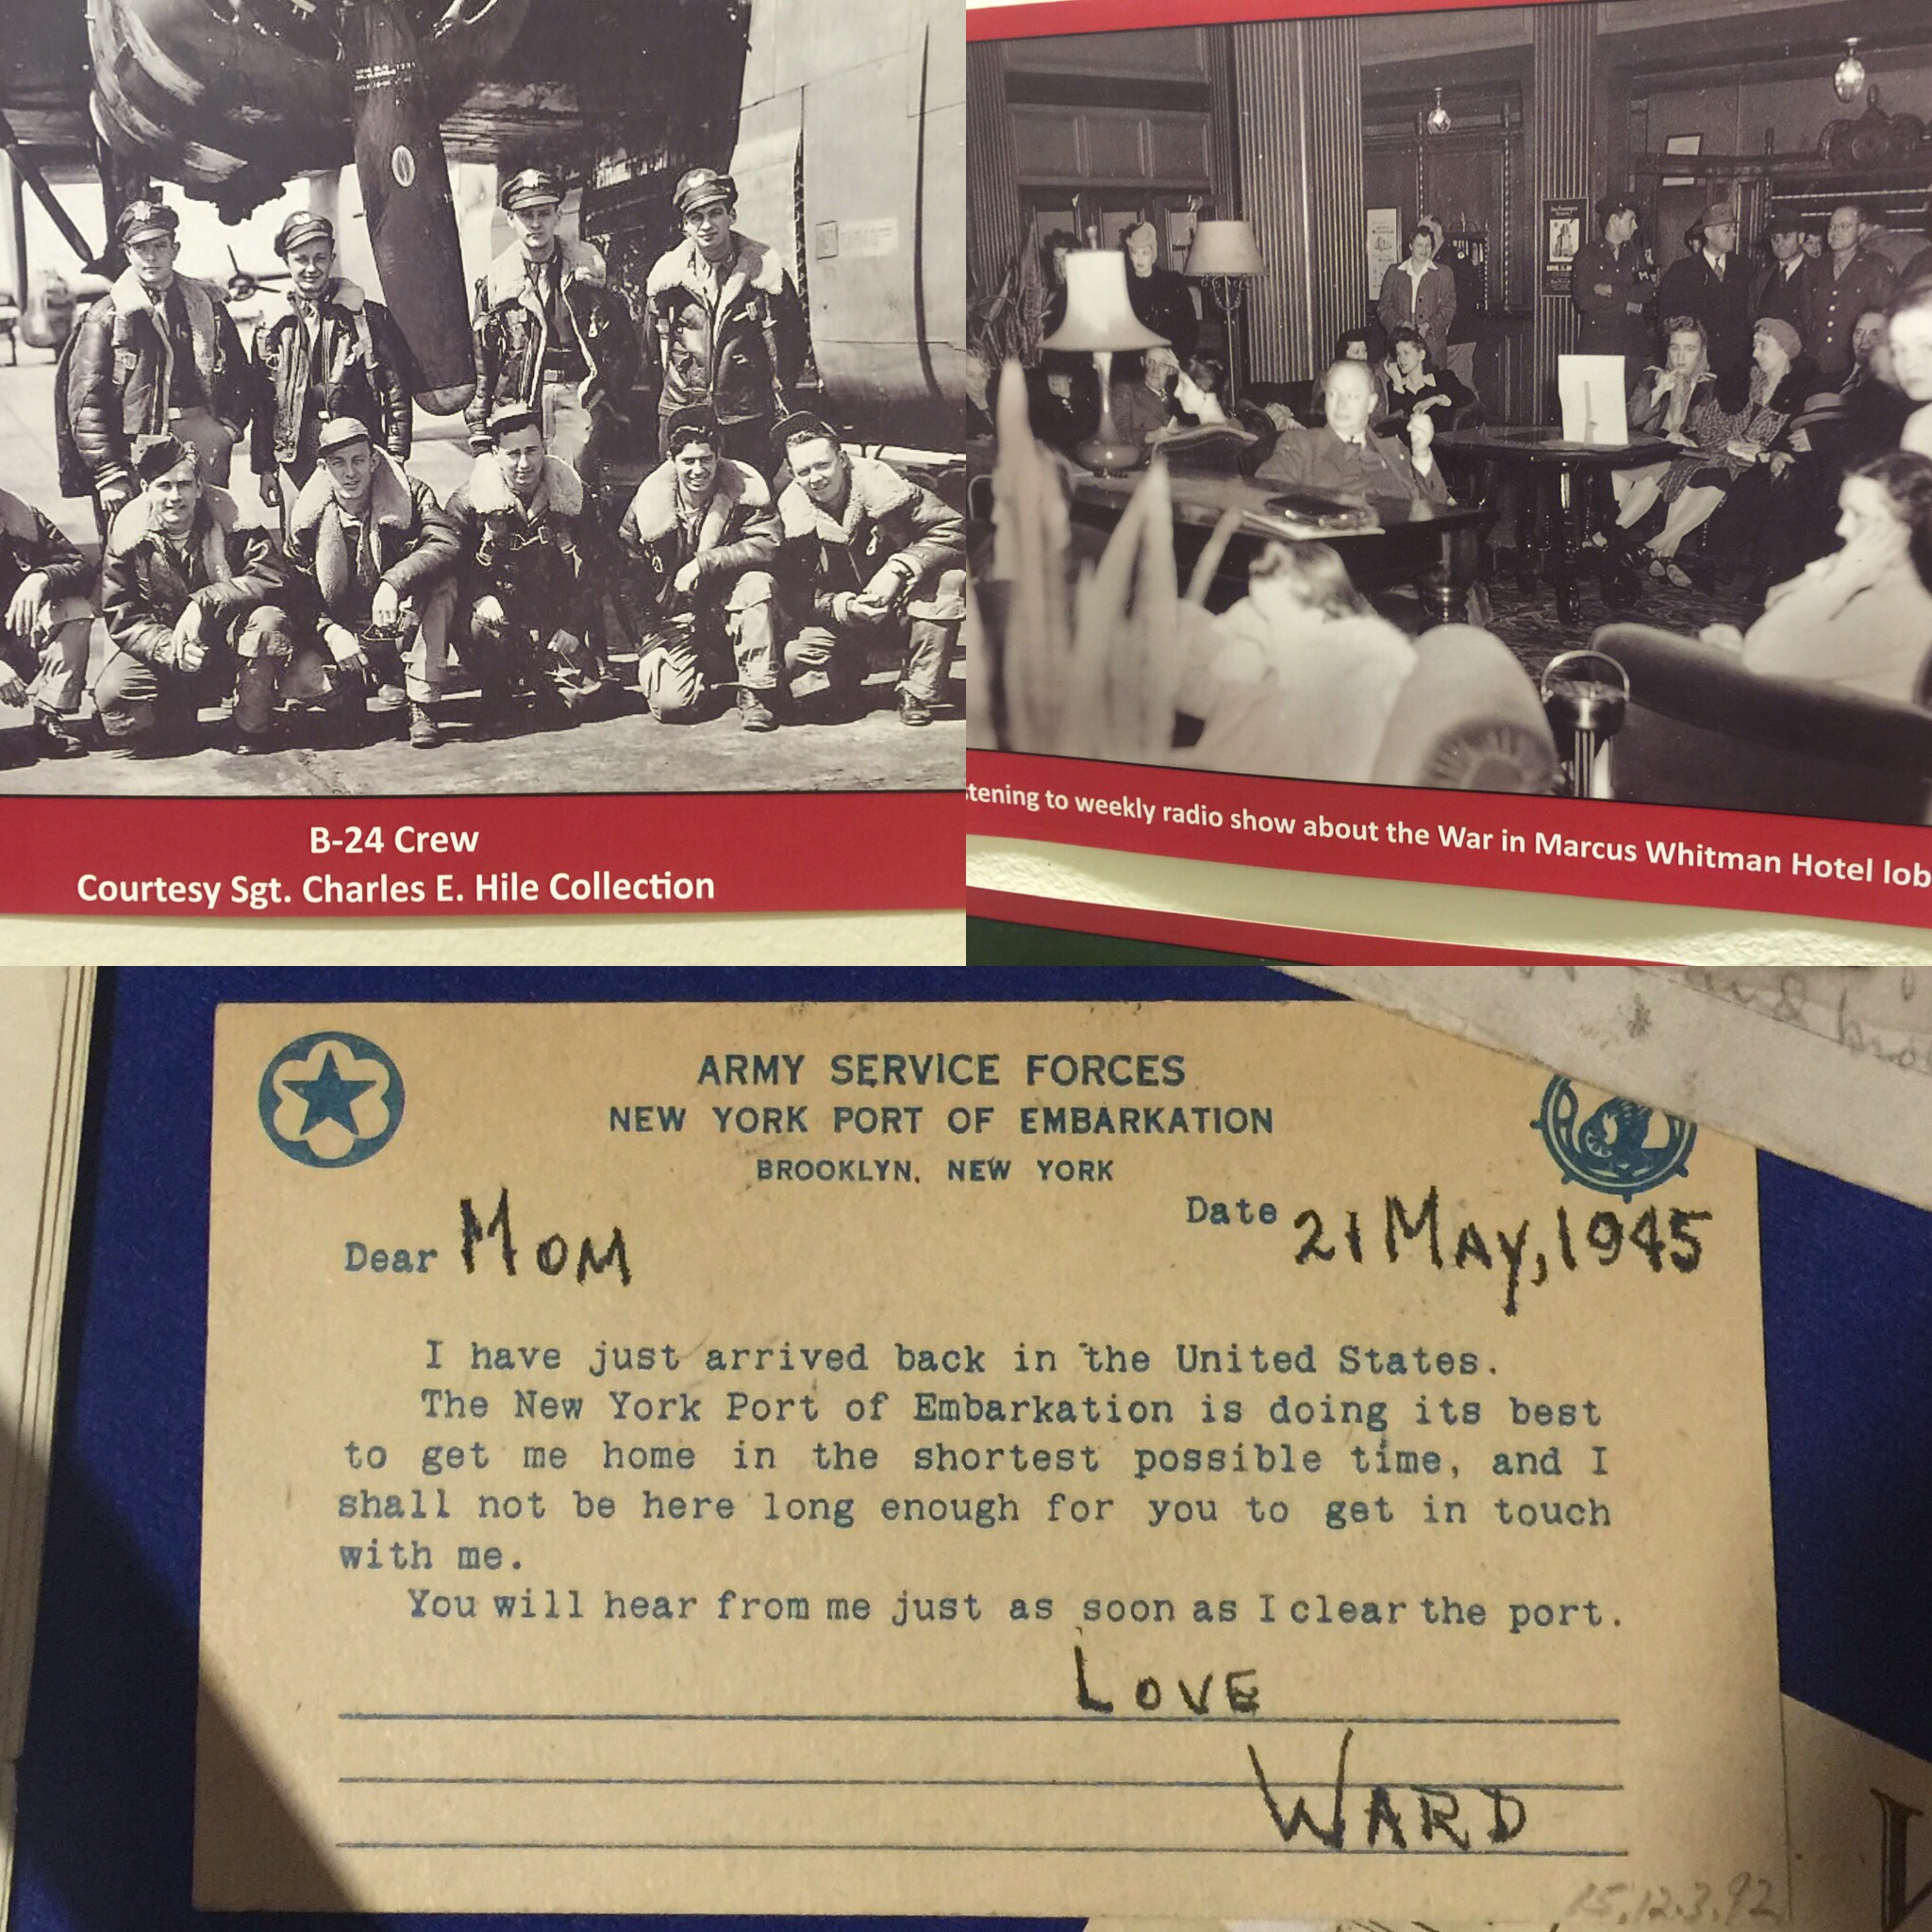 B-24 Crew
Courtesy Sgt. Charles E. Hile Collection
stening to weekly radio show about the War in Marcus Whitman Hotel lob
ARMY SERVICE FORCES
NEW YORK PORT OF EMBARKATION
BROOKLYN, NEW YORK
Date 21 MAY, 1945
Dear MOM
I have just arrived back in the United States.
The New York Port of Embarkation is doing its best
to get me home in the shortest possible time, and I
shall not be here long enough for you to get in touch
with me.
You will hear from me just as soon as I clear the port.
LOVE
WARD
15.12.3.92